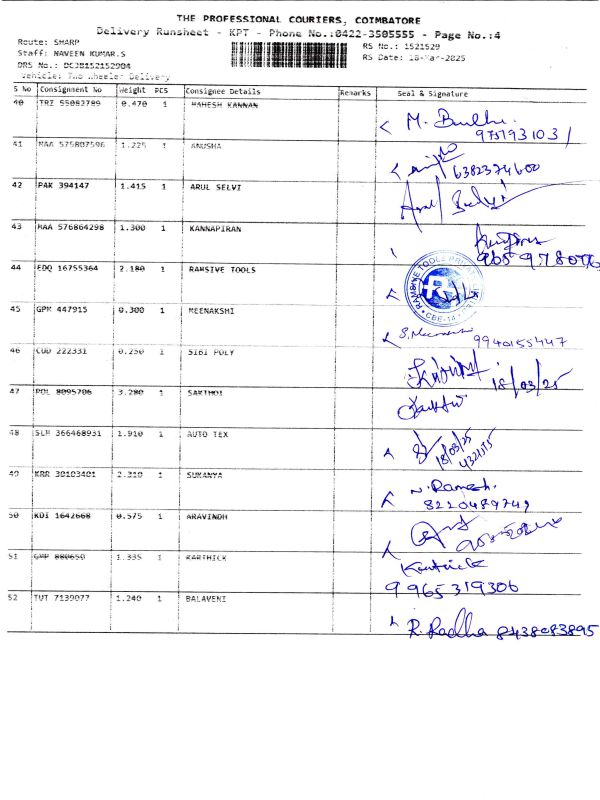 THE PROFESSIONAL COURIERS, COIMBATORE
Delivery Runsheet - KPT - Phone No.:0422-3505555 - Page No.:4
Route: SHARP
RS No.: 1521529
Staff: NAVEEN KUMAR.S
RS Date: 18-Mar-2025
DRS No.: DCJB152152904
Vehicle: Two Wheeler Delivery
S No Consignment No Weight PCS Consignee Details Remarks Seal & Signature
40 TRZ 55082789 0.470 1 MAHESH KANNAN
41 MAA 575807596 1.225 1 ANUSHA
6382374600
42 PAK 394147 1.415 1 ARUL SELVI
43 MAA 576864298 1.300 1 KANNAPIRAN
44 EDQ 16755364 2.180 1 RAMSIVE TOOLS
45 GPM 447915 0.300 1 MEENAKSHI
9940155447
46 CUD 222331 0.250 1 SIBI POLY
18/03/25
47 POL 8095706 3.280 1 SAKTHOI
48 SLM 366468931 1.910 1 AUTO TEX
18/03/25
49 KRR 30103401 2.310 1 SUKANYA
N. Ramesh.
8220489749
50 KDI 1642668 0.575 1 ARAVINDH
51 GMP 880650 1.335 1 KARTHICK
Karthick
9965319306
52 TUT 7139077 1.240 1 BALAVENI
R. Radha 8438083895